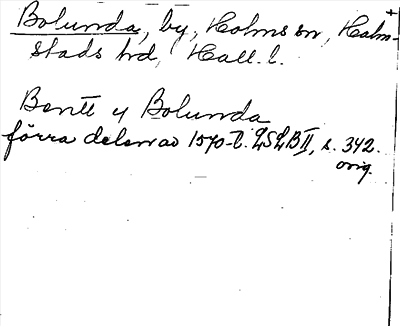 Bolunda, by, Holms sn, Halm-
stads hd, Hall. l.
Bentt y Bolunda
förra delen av 1570-t. LSLB II, s. 342.
orig.